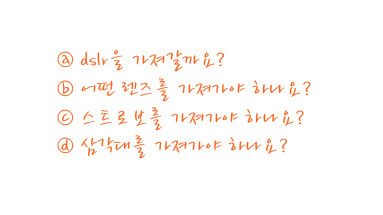 ⓐ dslr을 가져갈까요?
ⓑ 어떤 렌즈를 가져가야 하나요?
ⓒ 스트로보를 가져가야 하나요?
ⓓ 삼각대를 가져가야 하나요?